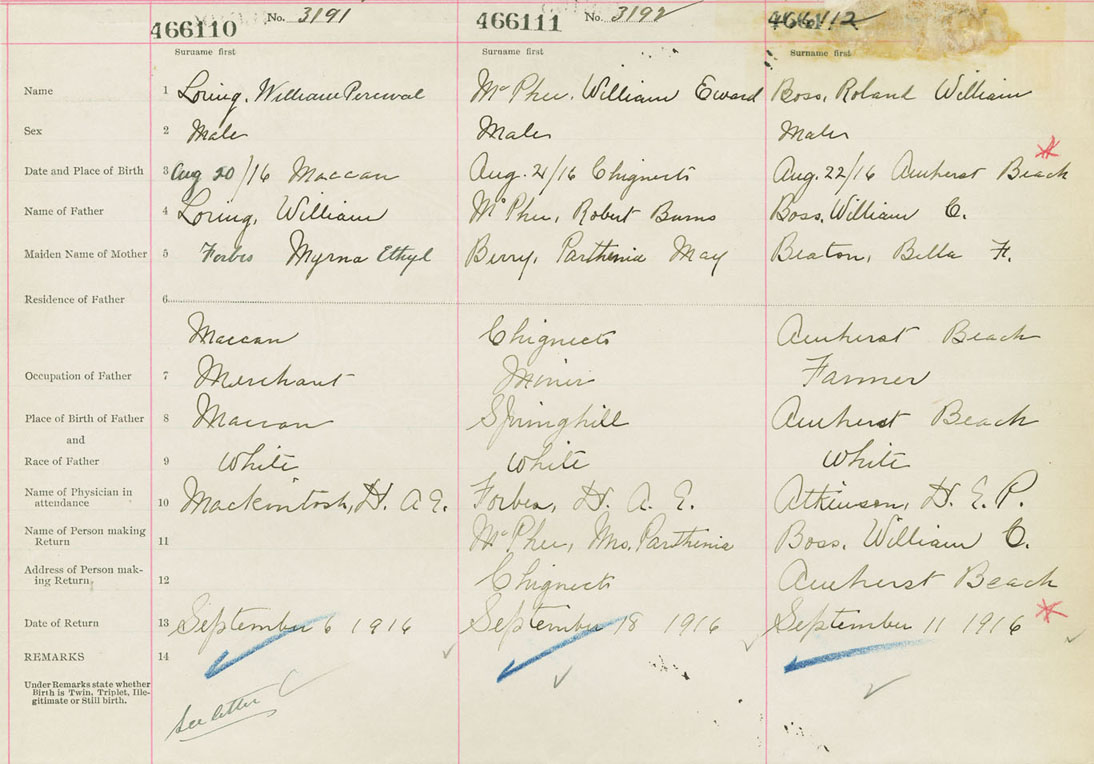 466110 No. 3191 466111 No. 3192 466112
Surname first Surname first Surname first
Name 1 Loring, William Percival McPhee, William Eward Boss, Roland William
Sex 2 Male Male Male
Date and Place of Birth 3 Aug 20/16 Maccan Aug. 21/16 Chignecto Aug. 22/16 Amherst Beach
Name of Father 4 Loring, William McPhee, Robert Burns Boss, William C.
Maiden Name of Mother 5 Forbes Myrna Ethyl Berry, Parthenia May Beaton, Bella F.
Residence of Father 6
Maccan Chignecto Amherst Beach
Occupation of Father 7 Merchant Miner Farmer
Place of Birth of Father 8 Maccan Springhill Amherst Beach
and
Race of Father 9 White White White
Name of Physician in
attendance 10 Mackintosh, H. A E. Forbes, H. A. E. Atkinson, H. E. P.
Name of Person making
Return 11 McPhee, Mrs. Parthenia Boss, William C.
Address of Person mak-
ing Return 12 Chignecto Amherst Beach
Date of Return 13 September 6 1916 September 18 1916 September 11 1916
REMARKS 14
Under Remarks state whether
Birth is Twin, Triplet, Ille-
gitimate or Still birth.
See letter C